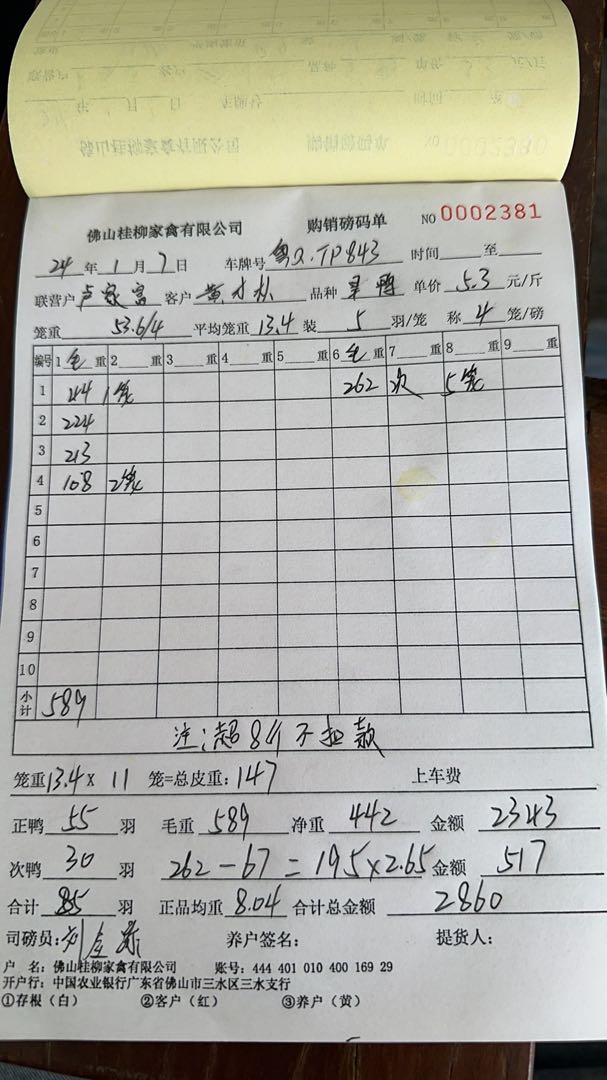 佛山桂柳家禽有限公司 购销磅码单 NO 0002381
24 年 1 月 7 日 车牌号 粤Q.TP843 时间 至
联营户 卢家富 客户 黄才林 品种 单价 5.3 元/斤
笼重 53.6/4 平均笼重 13.4 装 5 羽/笼 称 4 笼/磅
编号 1 毛 重 2 重 3 重 4 重 5 重 6 毛 重 7 重 8 重 9 重
1 44 1笼 262 次 5笼
2 224
3 213
4 108 2笼
5
6
7
8
9
10
小计 589
注:超8斤不扣款
笼重 13.4 × 11 笼=总皮重: 147 上车费
正鸭 55 羽 毛重 589 净重 442 金额 2343
次鸭 30 羽 262-67=195×2.65 金额 517
合计 85 羽 正品均重 8.04 合计总金额 2860
司磅员: 养户签名: 提货人:
户 名: 佛山桂柳家禽有限公司 账号: 444 401 010 400 169 29
开户行: 中国农业银行广东省佛山市三水区三水支行
①存根(白) ②客户(红) ③养户(黄)